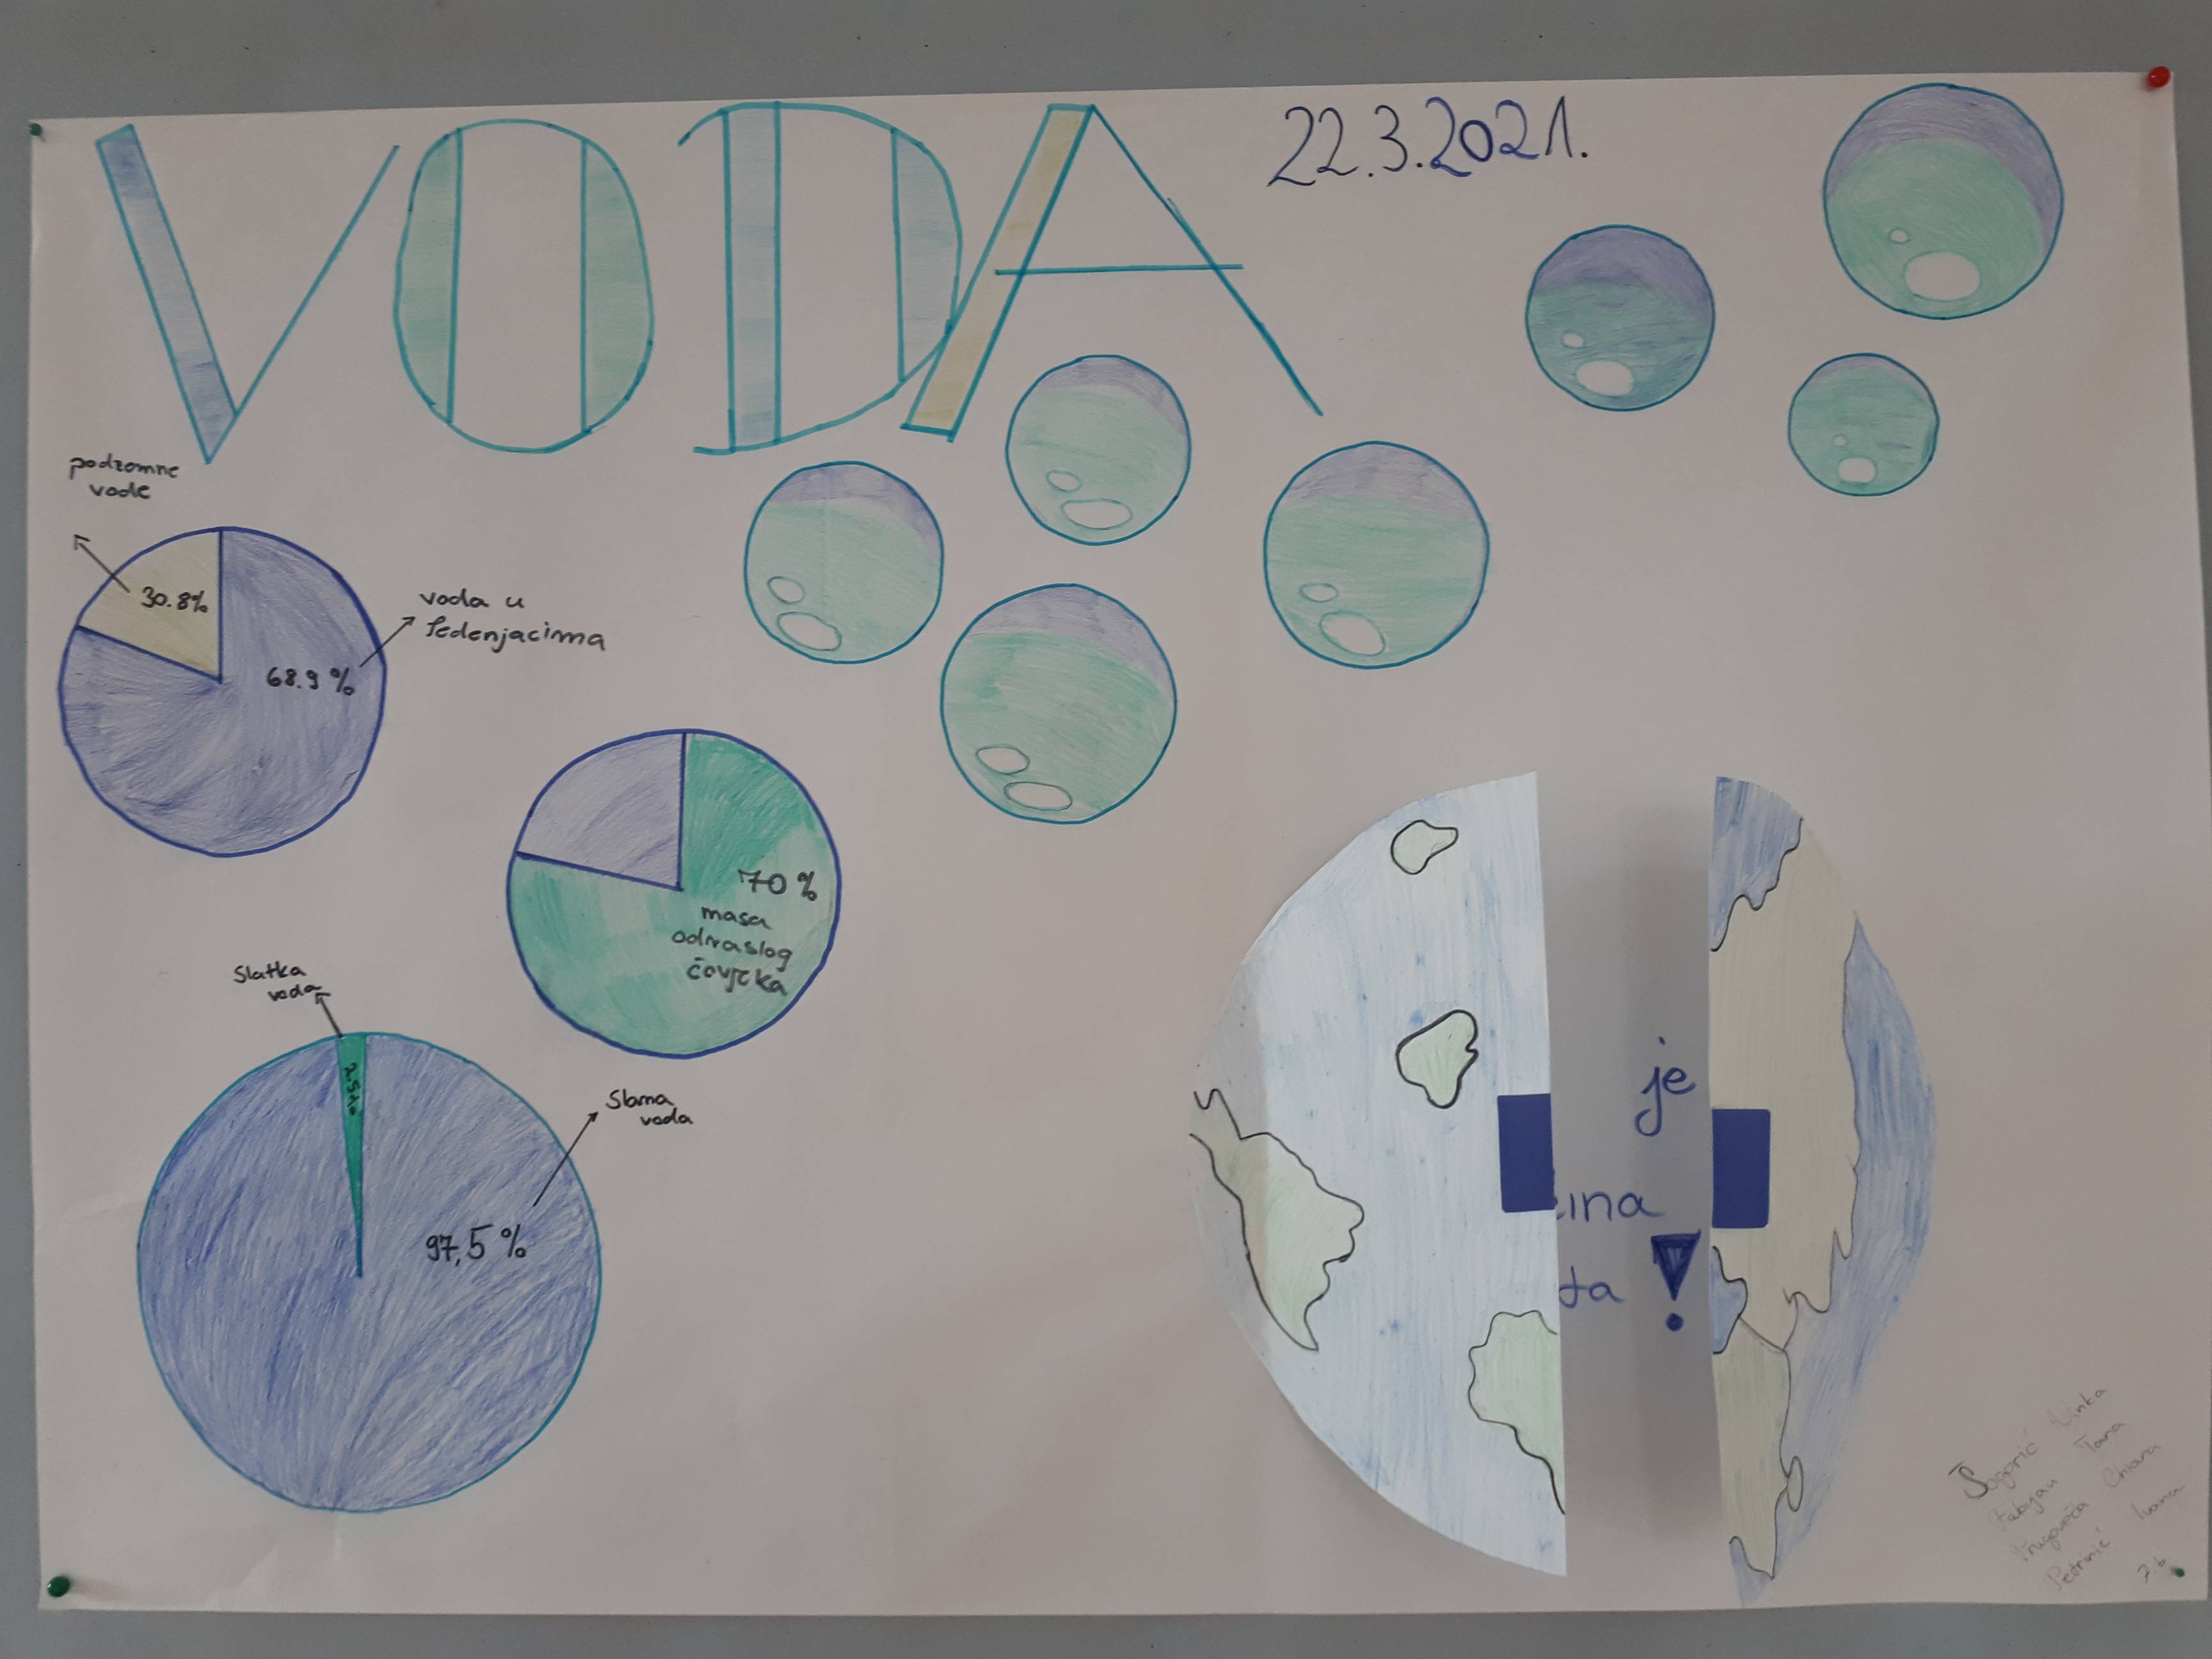 VODA
22.3.2021.
podzemne
vode
30.8%
voda u
ledenjacima
68.9 %
70 %
masa
odraslog
čovjeka
Slatka
voda
2.5%
Slana
voda
97,5 %
je
ina
ta !
Vinka
Fabijan Tana
Chiara
Petrinić Ivana
7.b